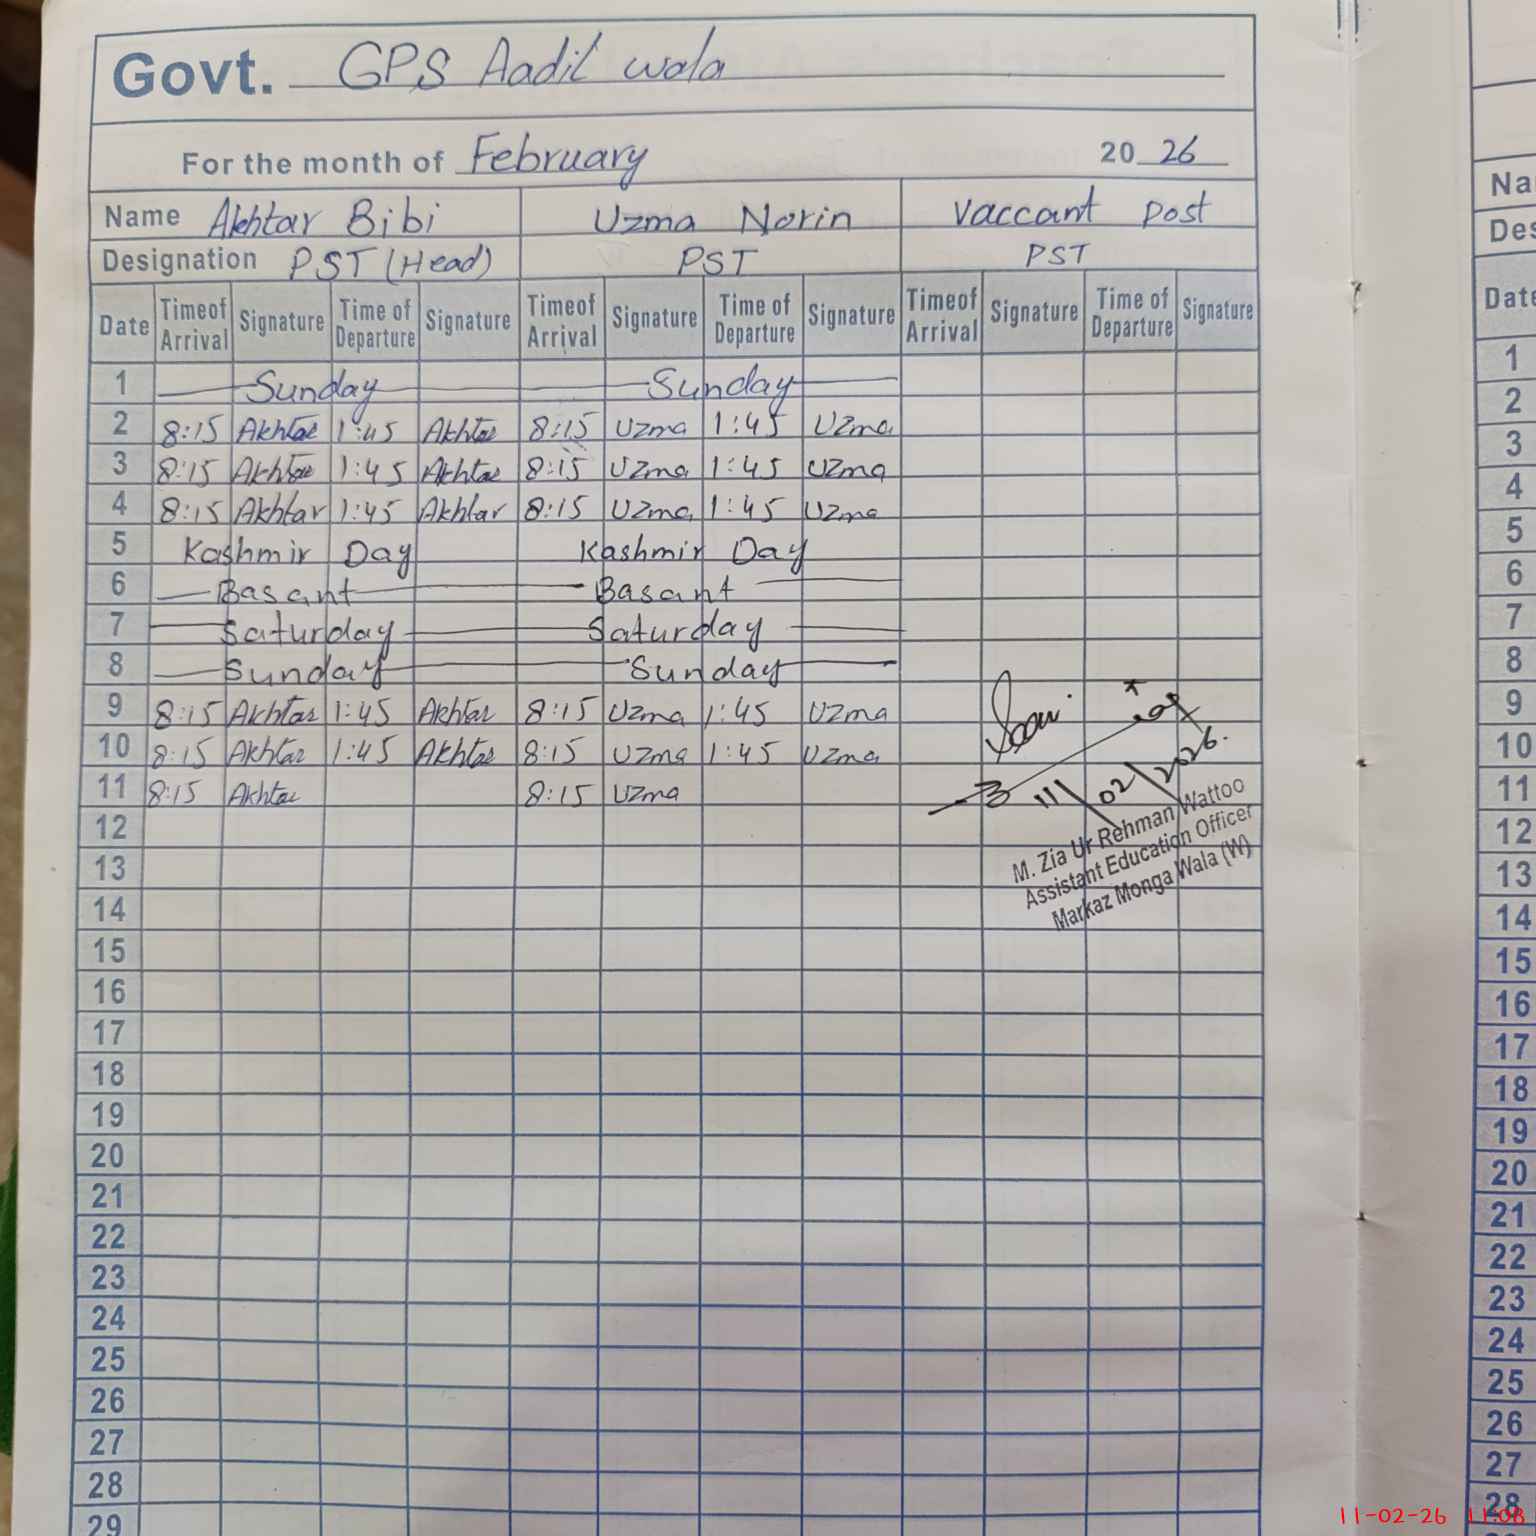 Govt. GPS Aadil wala
For the month of February 2026
Name Akhtar Bibi Uzma Norin Vaccant Post
Designation PST (Head) PST PST
Date Timeof Arrival Signature Time of Departure Signature Timeof Arrival Signature Time of Departure Signature Timeof Arrival Signature Time of Departure Signature
1 Sunday Sunday
2 8:15 Akhtar 1:45 Akhtar 8:15 Uzma 1:45 Uzma
3 8:15 Akhtar 1:45 Akhtar 8:15 Uzma 1:45 Uzma
4 8:15 Akhtar 1:45 Akhtar 8:15 Uzma 1:45 Uzma
5 Kashmir Day Kashmir Day
6 Basant Basant
7 Saturday Saturday
8 Sunday Sunday
9 8:15 Akhtar 1:45 Akhtar 8:15 Uzma 1:45 Uzma
10 8:15 Akhtar 1:45 Akhtar 8:15 Uzma 1:45 Uzma
11 8:15 Akhtar 8:15 Uzma
11/02/2026.
M. Zia Ur Rehman Wattoo
Assistant Education Officer
Markaz Monga Wala (W)
12
13
14
15
16
17
18
19
20
21
22
23
24
25
26
27
28
29
Na
Des
Date
1
2
3
4
5
6
7
8
9
10
11
12
13
14
15
16
17
18
19
20
21
22
23
24
25
26
27
28
11-02-26 11:08